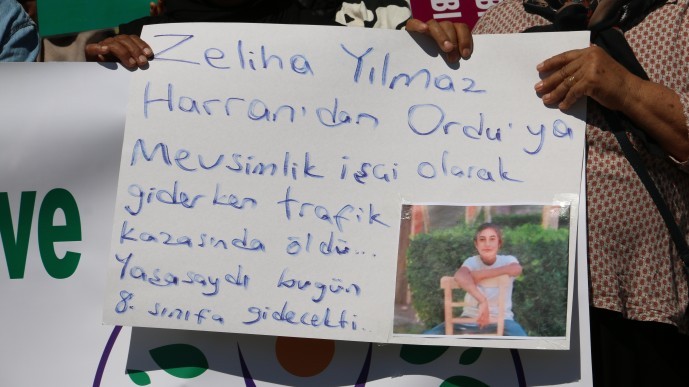 BI
Zeliha Yılmaz
Harran'dan Ordu'ya
Mevsimlik işçi olarak
giderken trafik
kazasında öldü...
Yaşasaydı bugün
8. sınıfa gidecekti..
ve